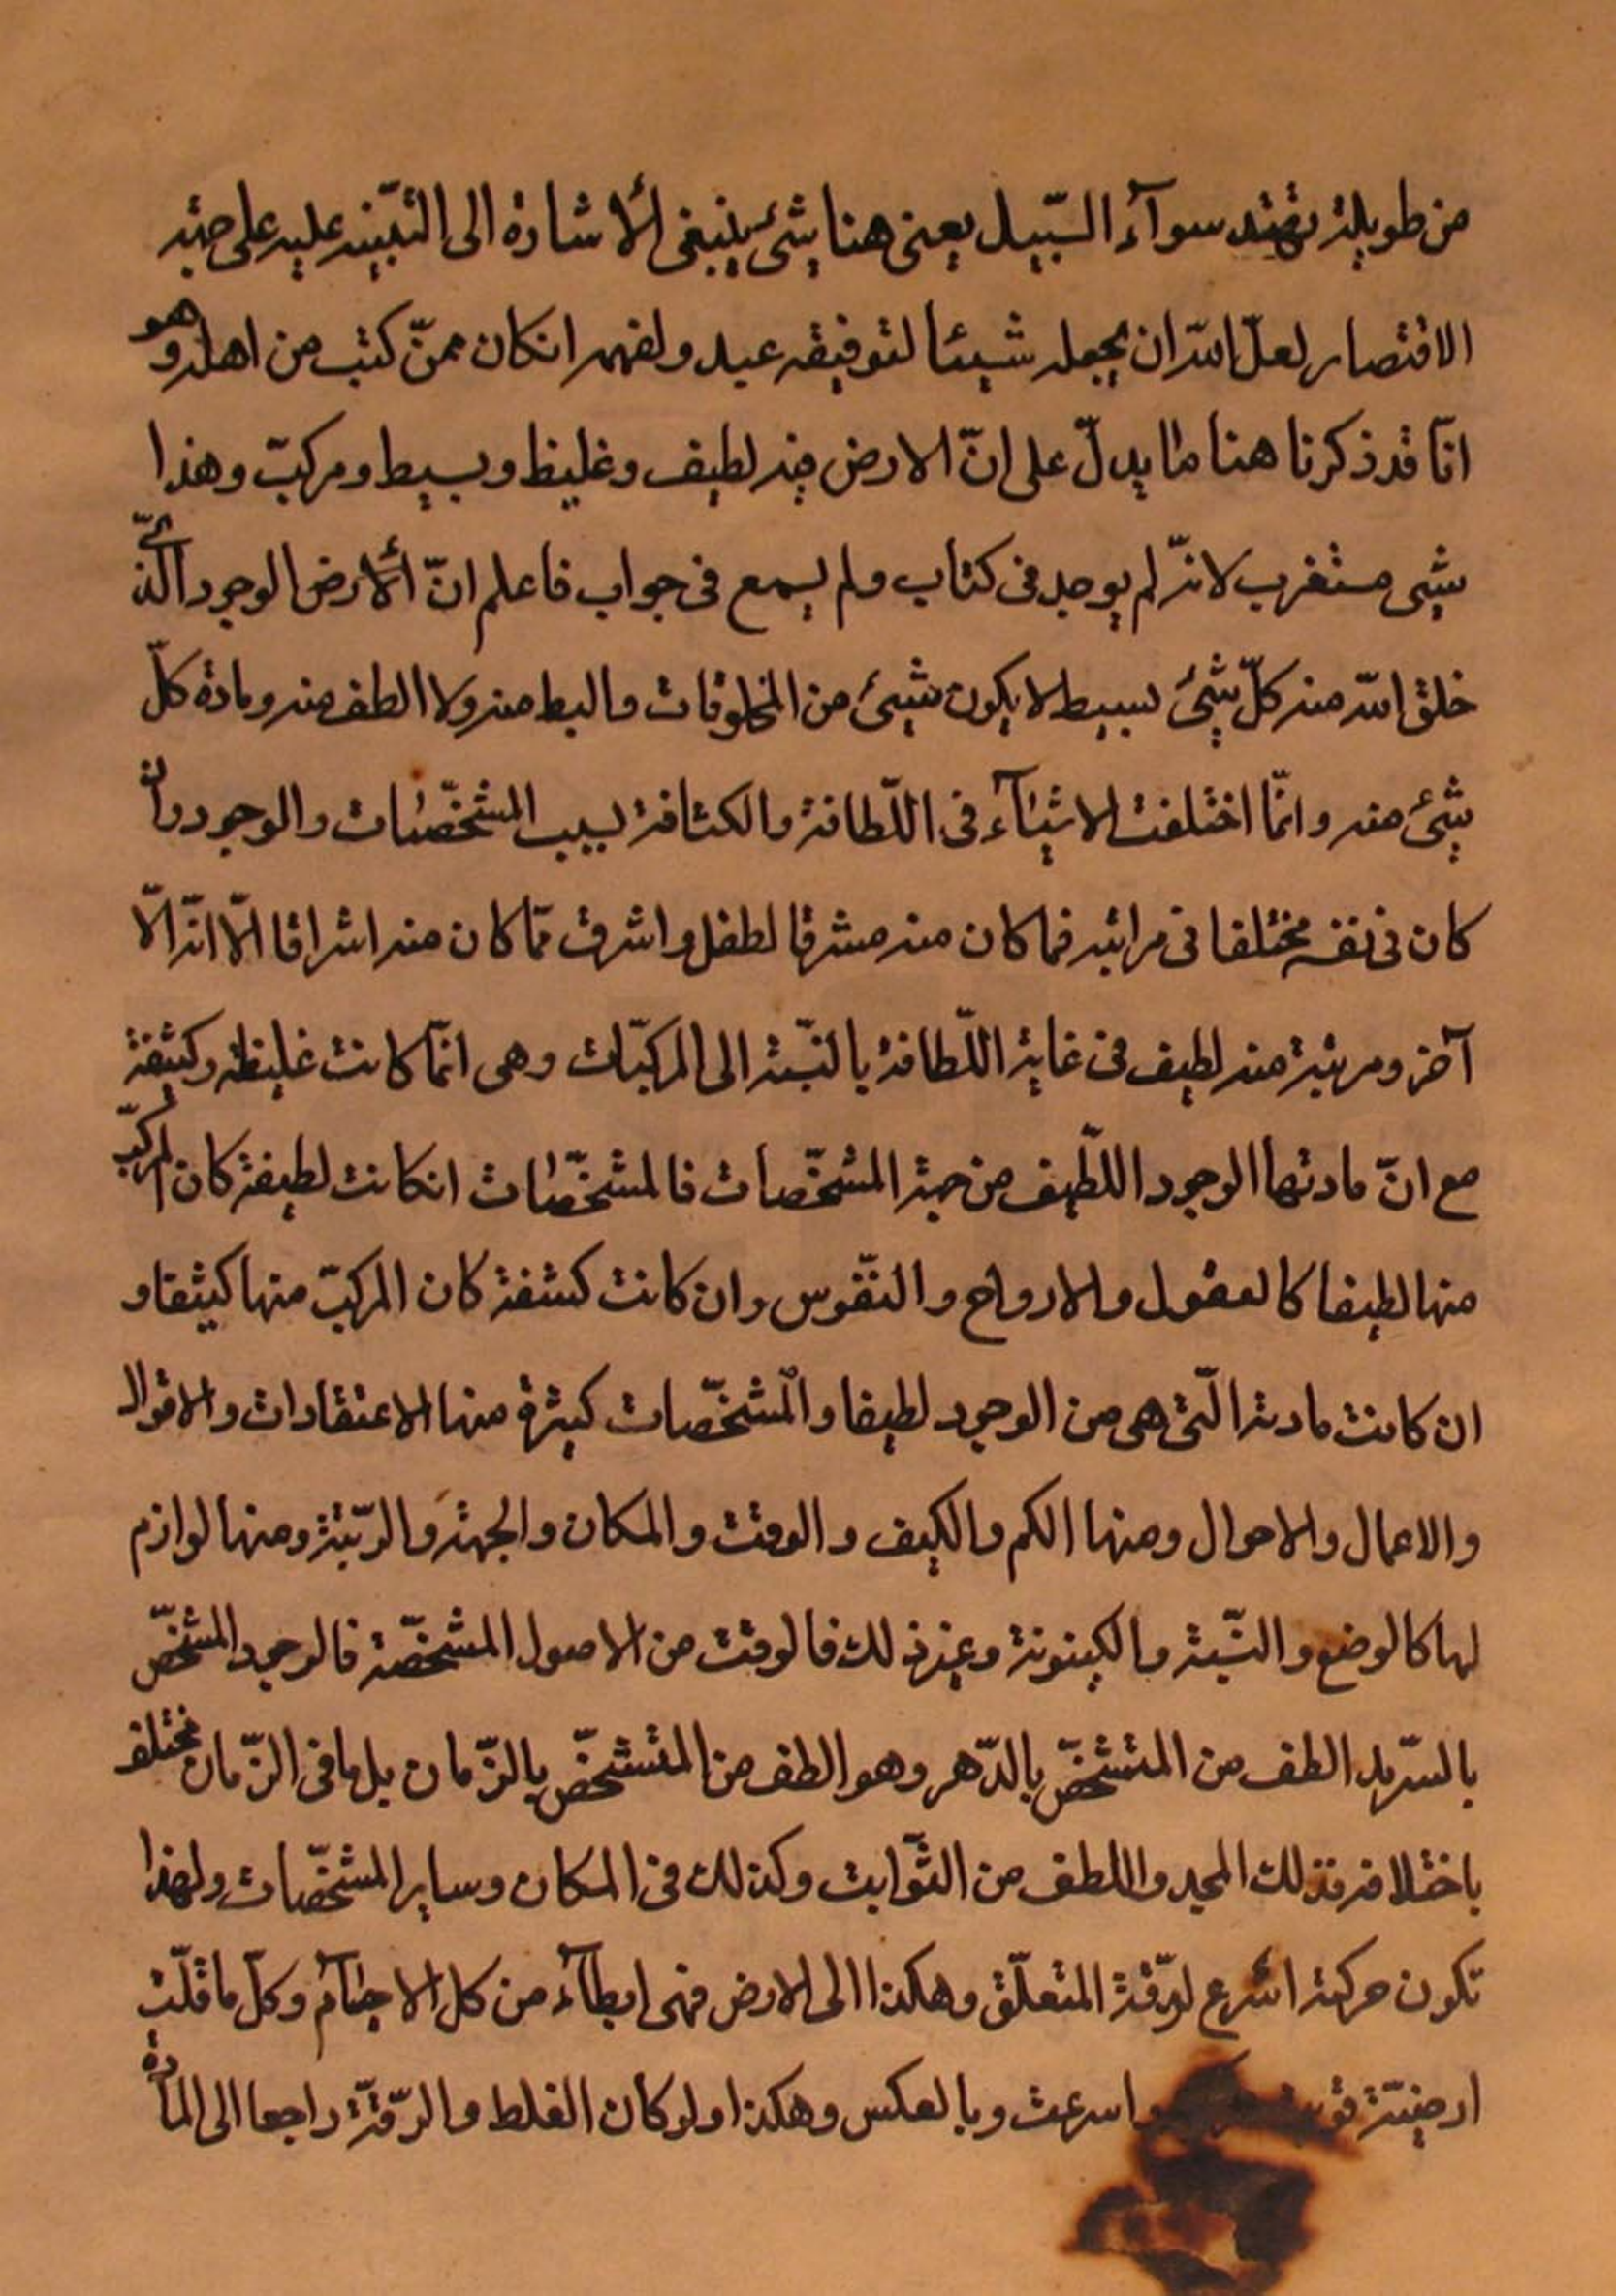 من طويلة تهتد سوآء السّبيل يعنى هنا شئ ينبغى ألاشارة الى التّبيّنه عليه على جهة
الاقتصار لعلّ الله ان يجعله شيئا لتوفيقه عبد ولفهمه انكان ممّن كتب من اهله وهو
انّا قد ذكرنا هنا ما يدلّ على انّ الارض فيه لطيف وغليظ وبسيط ومركبّ وهذا
شيى مستغرب لانّه لم يوجد فى كتاب ولم يسمع فى جواب فاعلم انّ ألارض الوجود الّذى
خلق الله منه كلّ شيئ بسيط لا يكون شيئ من المخلوقات والبط منه ولا الطف منه ومادة كلّ
شيئ منه وانمّا اختلفت الاشيآء فى اللّطافة والكثافة بسبب المشخّصات والوجود وان
كان فى نفسه مختلفا فى مراتبه فما كان منه مشرقا لطف واشرق ممّا كان منه اشراقا الّا انّه الّا
آخر ومرتبة منه لطيف فى غاية اللّطافة بالنّسبة الى المركبّات وهى انمّا كانت غليظة وكثيفة
مع انّ مادتها الوجود اللّطيف من جهة المشخّصات فالمشخّصات انكانت لطيفة كان المركبّ
منها لطيفا كالعقول والارواح والنّفوس وان كانت كشفة كان المركبّ منها كيثفا و
ان كانت مادته الّتى هى من الوجود لطيفا والمشخّصات كيثرة منها الاعتقادات والاقوال
والاعمال والاحوال ومنها الكم والكيف والوقت والمكان والجهة والرّتبة ومنها لوازم
لها كالوضع والنّسبة والكينونة وغيرذلك فالوقت من الاصول المشخّصة فالوجود المشخّص
بالسّرمد الطف من المتشخّص بالدّهر وهو الطف من المتشخّص بالزّمان بل ما فى الزّمان مختلف
باختلافه فذلك المحدد اللطف من الثّوابت وكذلك فى المكان وساير المشخّصات ولهذا
تكون حركته اسرع لرقّة المتعلّق وهكذا الى الارض فهى ابطآء من كل الاجسآم وكلّ ما قلّت
ارضيّته واسرعت وبالعكس وهكذا ولو كان الغلظ والرّقّة راجعا الى المادة